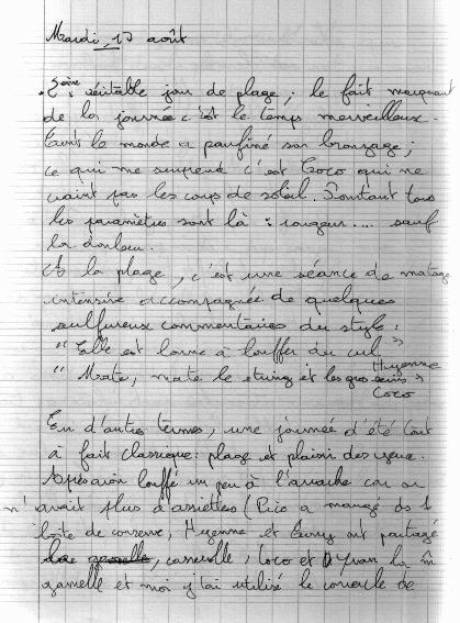 Mardi, 13 août
2ème véritable jour de plage ; le fait marquant
de la journée c'est le temps merveilleux.
Tout le monde a paufiné son bronzage ;
ce qui me surprend c'est Coco qui ne
craint pas les coups de soleil. Pourtant tous
les paramètres sont là : rougeur.... sauf
la douleur.
A la plage, c'est une séance de matage
intensive accompagnée de quelques
sulfureux commentaires du style :
" Elle est bonne à bouffer du cul "
" Mate, mate le string et les gros seins "
Hyenne
Coco
En d'autres termes, une journée d'été tout
à fait classique : plage et plaisir des yeux.
Après avoir bouffé un peu à l'arrache car on
n'avait plus d'assiettes ( Pico a mangé ds 1
boîte de conserve, Hyenne et ont partagé
casserole, Coco et Yvan la m̂
gamelle et moi j'ai utilisé le couvercle de